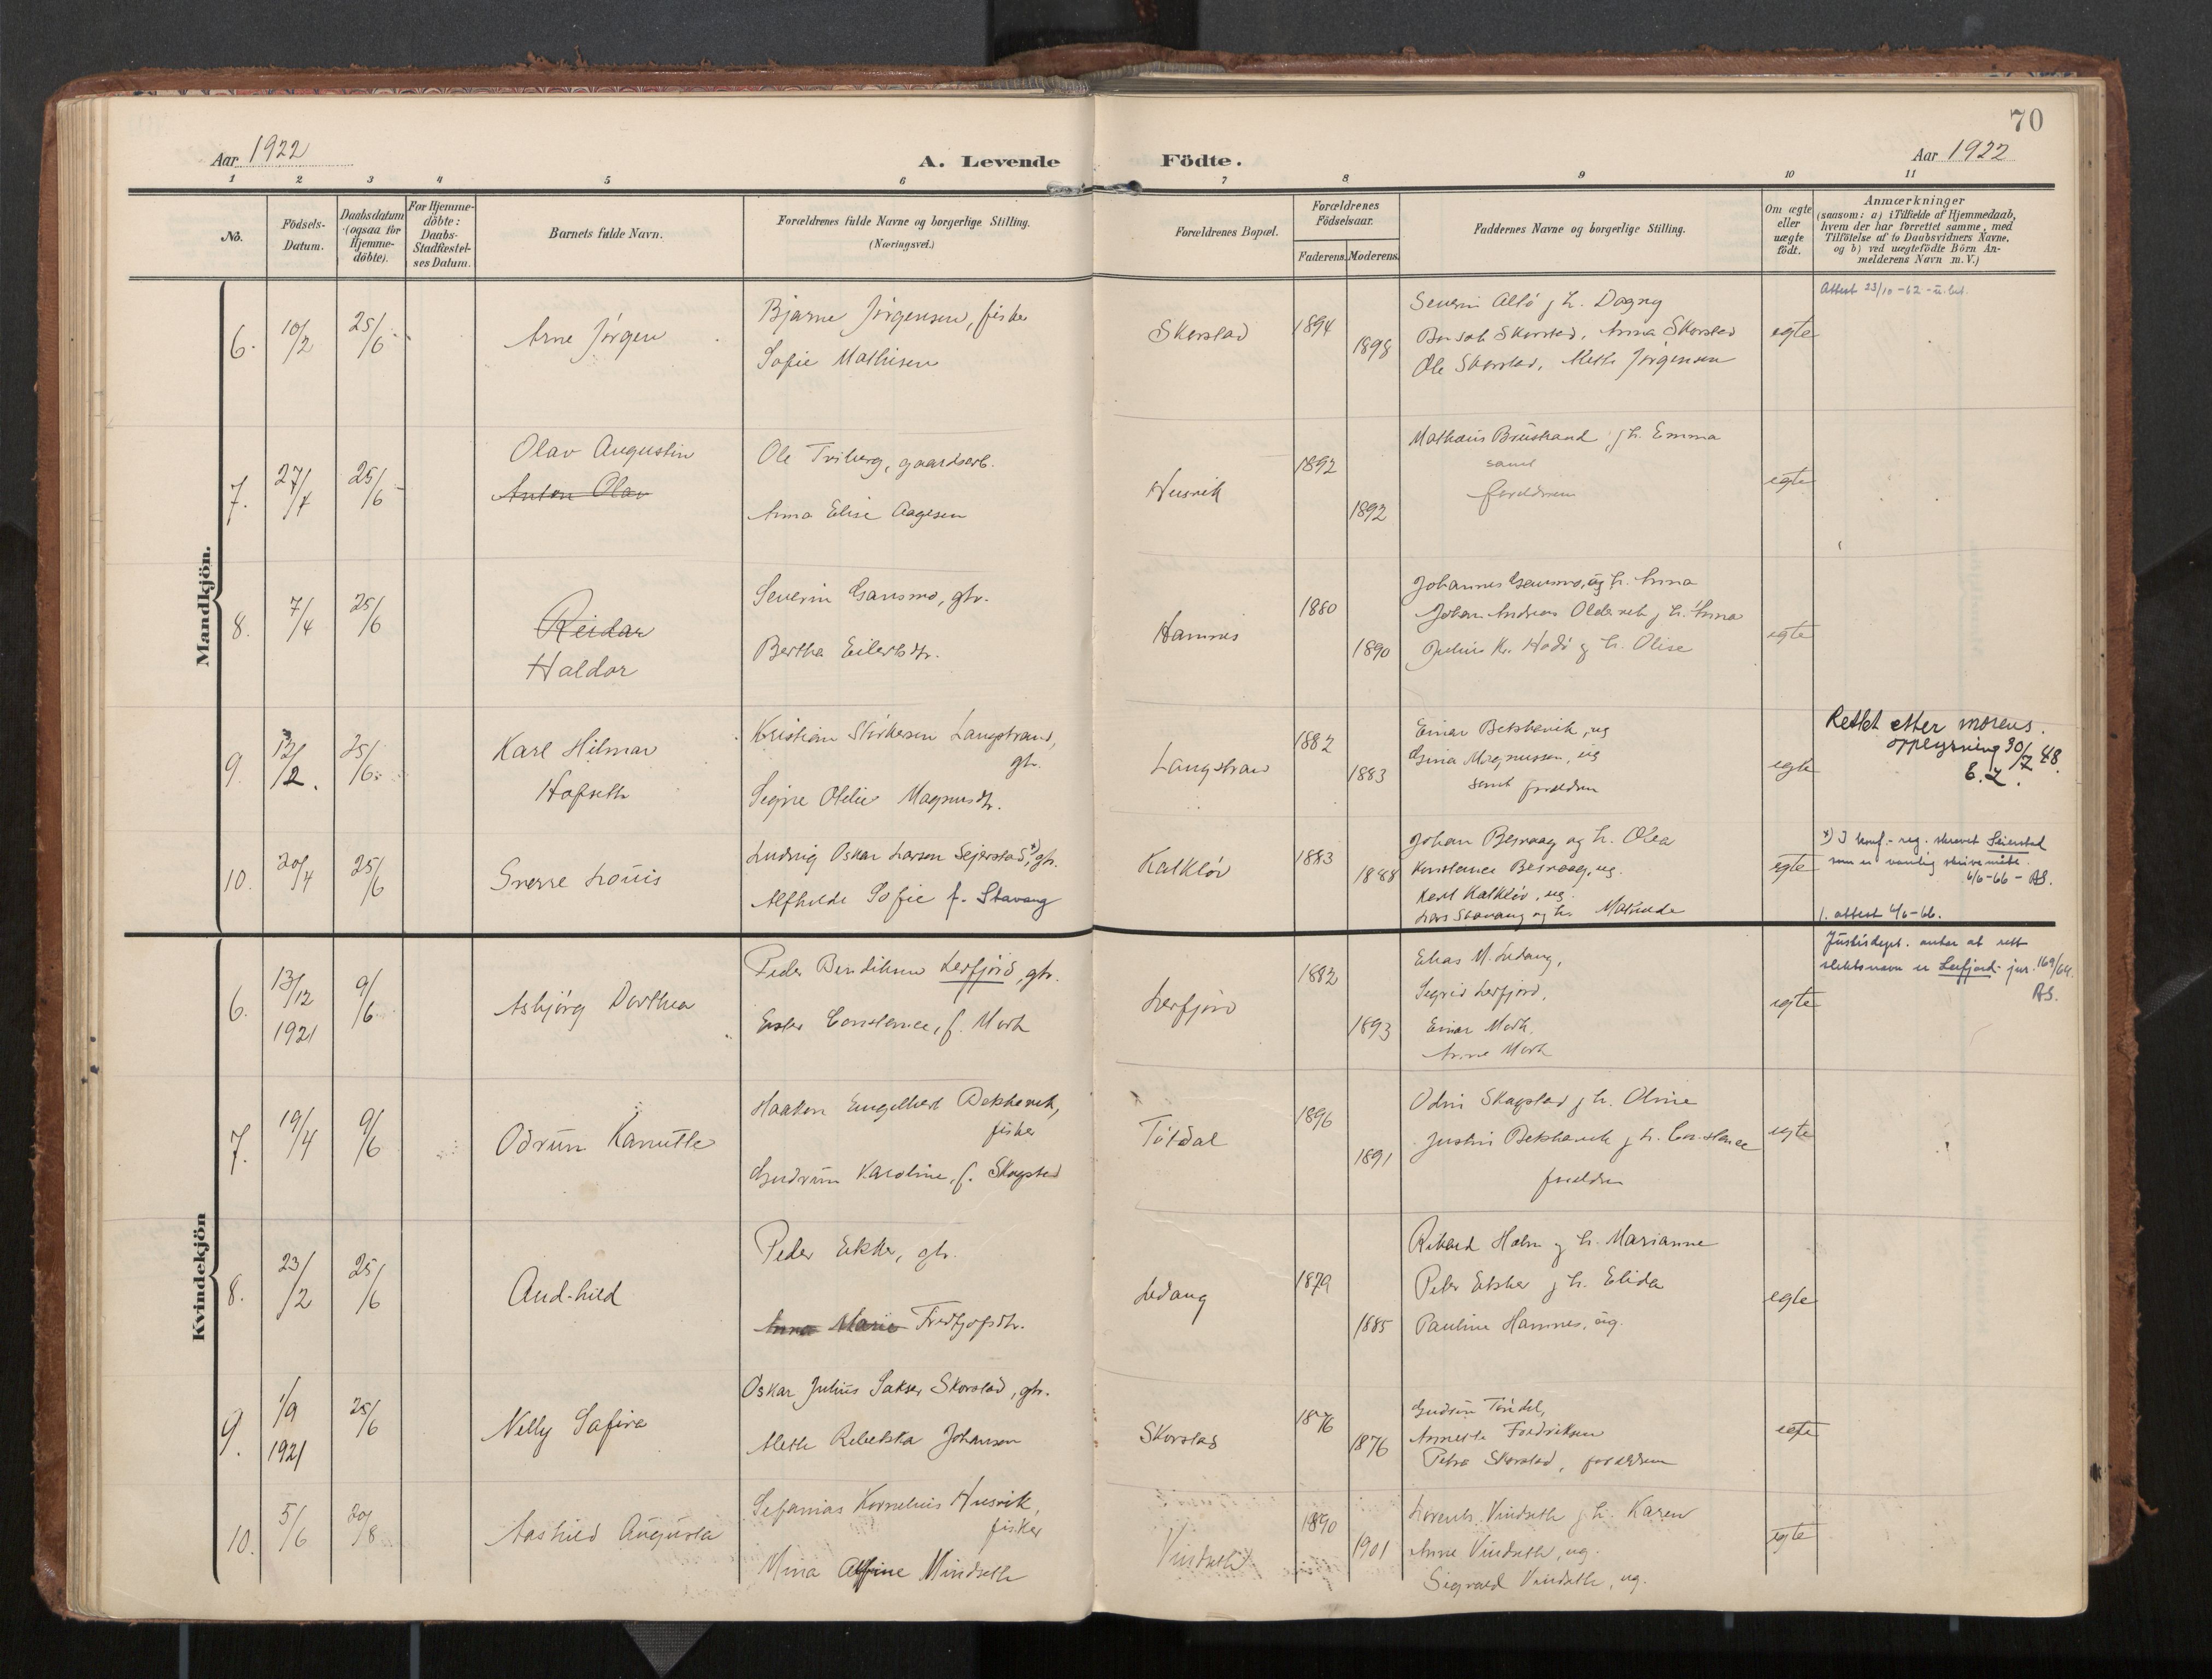 70
Aar 1922
A. Levende
Födte.
Aar 1922
1 2 3 4 5 6 7 8 9 10 11
No.
Födsels-
Datum.
Daabsdatum
(ogsaa for
Hjemme-
döbte).
For Hjemme-
döbte:
Daabs-
Stadfæstel-
ses Datum.
Barnets fulde Navn.
Forældrenes fulde Navne og borgerlige Stilling.
(Næringsvei.)
Forældrenes Bopæl.
Forældrenes
Födselsaar.
Faderens. Moderens.
Faddernes Navne og borgerlige Stilling.
Om ægte
eller
uægte
födt.
Anmærkninger
(saasom: a) i Tilfælde af Hjemmedaab,
hvem der har forrettet samme, med
Tilföielse af to Daabsvidners Navne,
og b) ved uægtefödte Börn An-
melderens Navn m.V.)
Mandkjön.
6. 10/2 25/6
Arne Jörgen
Bjarne Jörgensen, fisker
Sofie Mathisen
Skorstad
1894
1898
Severin Altö g h. Dagny
Skorstad, Anna Skorstad
Ole Skorstad, Meth Jörgensen
egte
Attest 23/10-62
7. 27/4 25/6
Olav Augustin
Anton Olav
Ole Triberg, gaardarb.
Anna Elise Aagesen
Husvik
1892
1892
Mathæus Brustrand g h. Emma
samt
foreldrene
egte
8. 7/4 25/6
Reidar
Haldor
Severin Gansmo, gbr.
Bertha Eilertsdtr.
Hamnes
1880
1890
Johannes Gansmo, og h. Anna
Johan Andreas Oldervik g h. Anna
Julius K. Hodö g h. Olise
egte
9. 12/2. 25/6
Karl Hilmar
Hofseth
Kristian Störkesen Langstrand,
gbr.
Signe Otilie Magnusdtr.
Langstrand
1882
1883
Einar Bekkevik, ug
Gina Magnussen, ug
samt foreldrene
egte
Rettet etter morens
opplysning 30/7 48.
E.Z.
10. 20/4 25/6
Sverre Louis
Ludvig Oskar Larsen Sejerstad x), gbr.
Alfhilde Sofie f. Stavang
Kalklöv
1883
1888
Johan Besvaag og h. Olea
Konstance Besvaag, ug.
Karl Kalklöv, ug.
Lars Stavang og h. Mathilde
egte
x) I konf.-reg. skrevet Seierstad
som er vanlig skrivemåte.
6/6-66 - AS.
1. attest 6/6-66.
Kvindekjön
6. 13/12 9/6
1921
Asbjörg Dorthea
Peder Bendiksen Lerfjord, gbr.
Ester Constance, f. Mork
Lerfjord
1882
1893
Elias M. Ledang,
Sigrid Lerfjord,
Einar Mork.
Anne Mork
egte
Justisdept. antar at rett
slektsnavn er Leifjord - jnr. 169/64.
AS.
7. 19/4 9/6
Odrun Kanutte
Haakon Engelbert Bekkevik,
fisker
Gudrun Karoline, f. Skagstad
Tötdal
1896
1891
Odin Skagstad g h. Oline
Justin Bekkevik g h. Constance
foreldre
egte
8. 23/2 25/6
Aud-hild
Peder Ekker, gbr.
Anna Marie Fredtjofsdtr.
Ledang
1879
1885
Rikard Holm g h. Marianne
Peter Ekker g h. Elida
Pauline Hamnes, ug.
egte
9. 1/9 25/6
1921
Nelly Safira
Oskar Julius Sakser Skorstad, gbr.
Meth Rebekka Johansen
Skorstad
1876
1876
Gudrun Töndel,
Annette Fredriksen
Petra Skorstad, foreldrene
egte
10. 5/6 20/8
Aashild Augusta
Sefanias Kornelius Husvik,
fisker
Mina Alfine Vindseth
Vindseth
1890
1901
Lorents Vindseth g h. Karen
Anne Vindseth, ug.
Sigvald Vindseth, ug.
egte